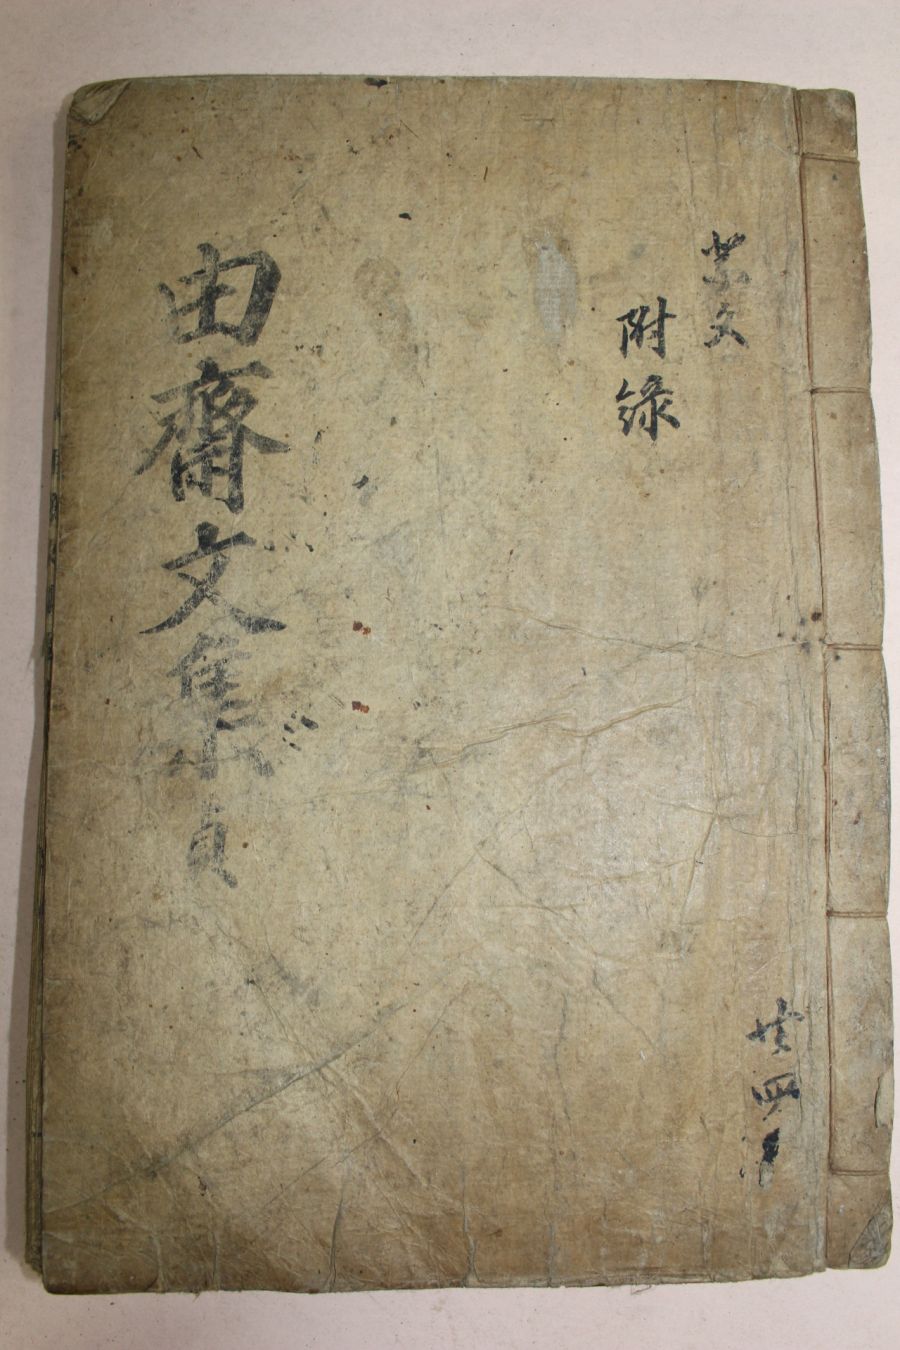 祭文
附錄
由齋文集 貞
共四